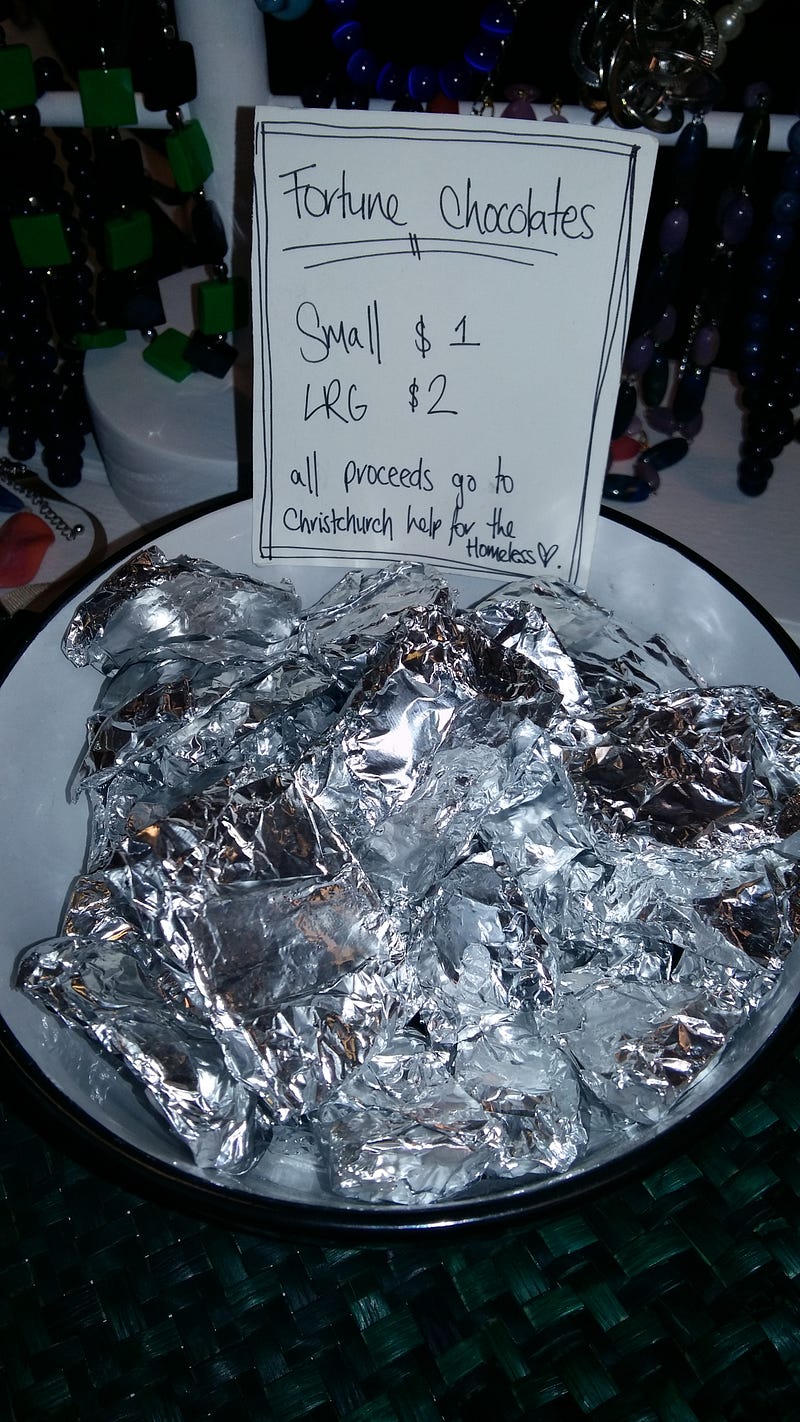 Fortune Chocolates
Small $ 1
LRG $2
all proceeds go to
Christchurch help for the
Homeless♡.